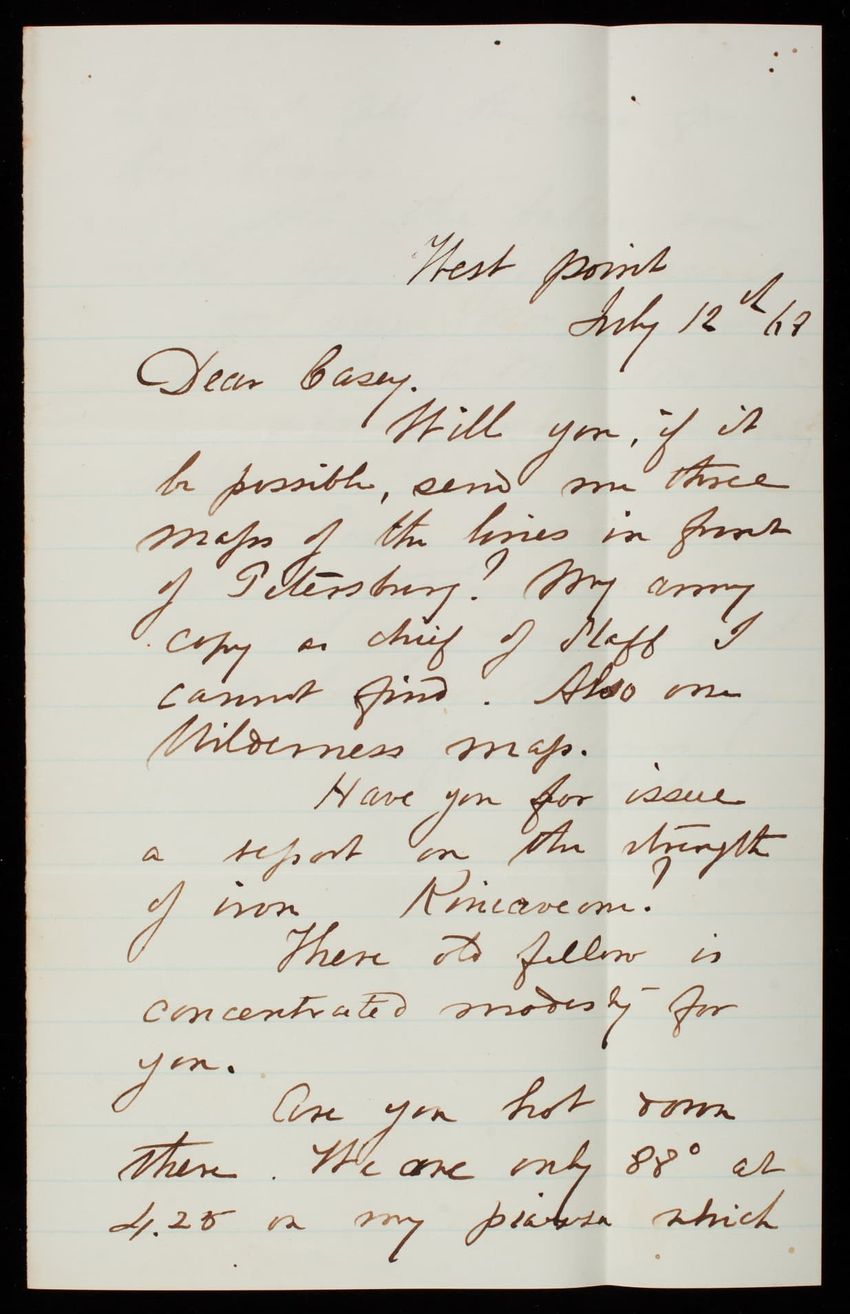 West point
July 12th 68
Dear Casey.
Will you, if it
be possible, send me three
maps of the lines in front
of Petersburg? My army
copy as chief of Staff I
cannot find. Also one
Wilderness map.
Have you for issue
a report on the strength
of iron
There old fellow is
concentrated modesty for
you.
Are you hot down
there. We are only 88° at
4.25 on my piazza which